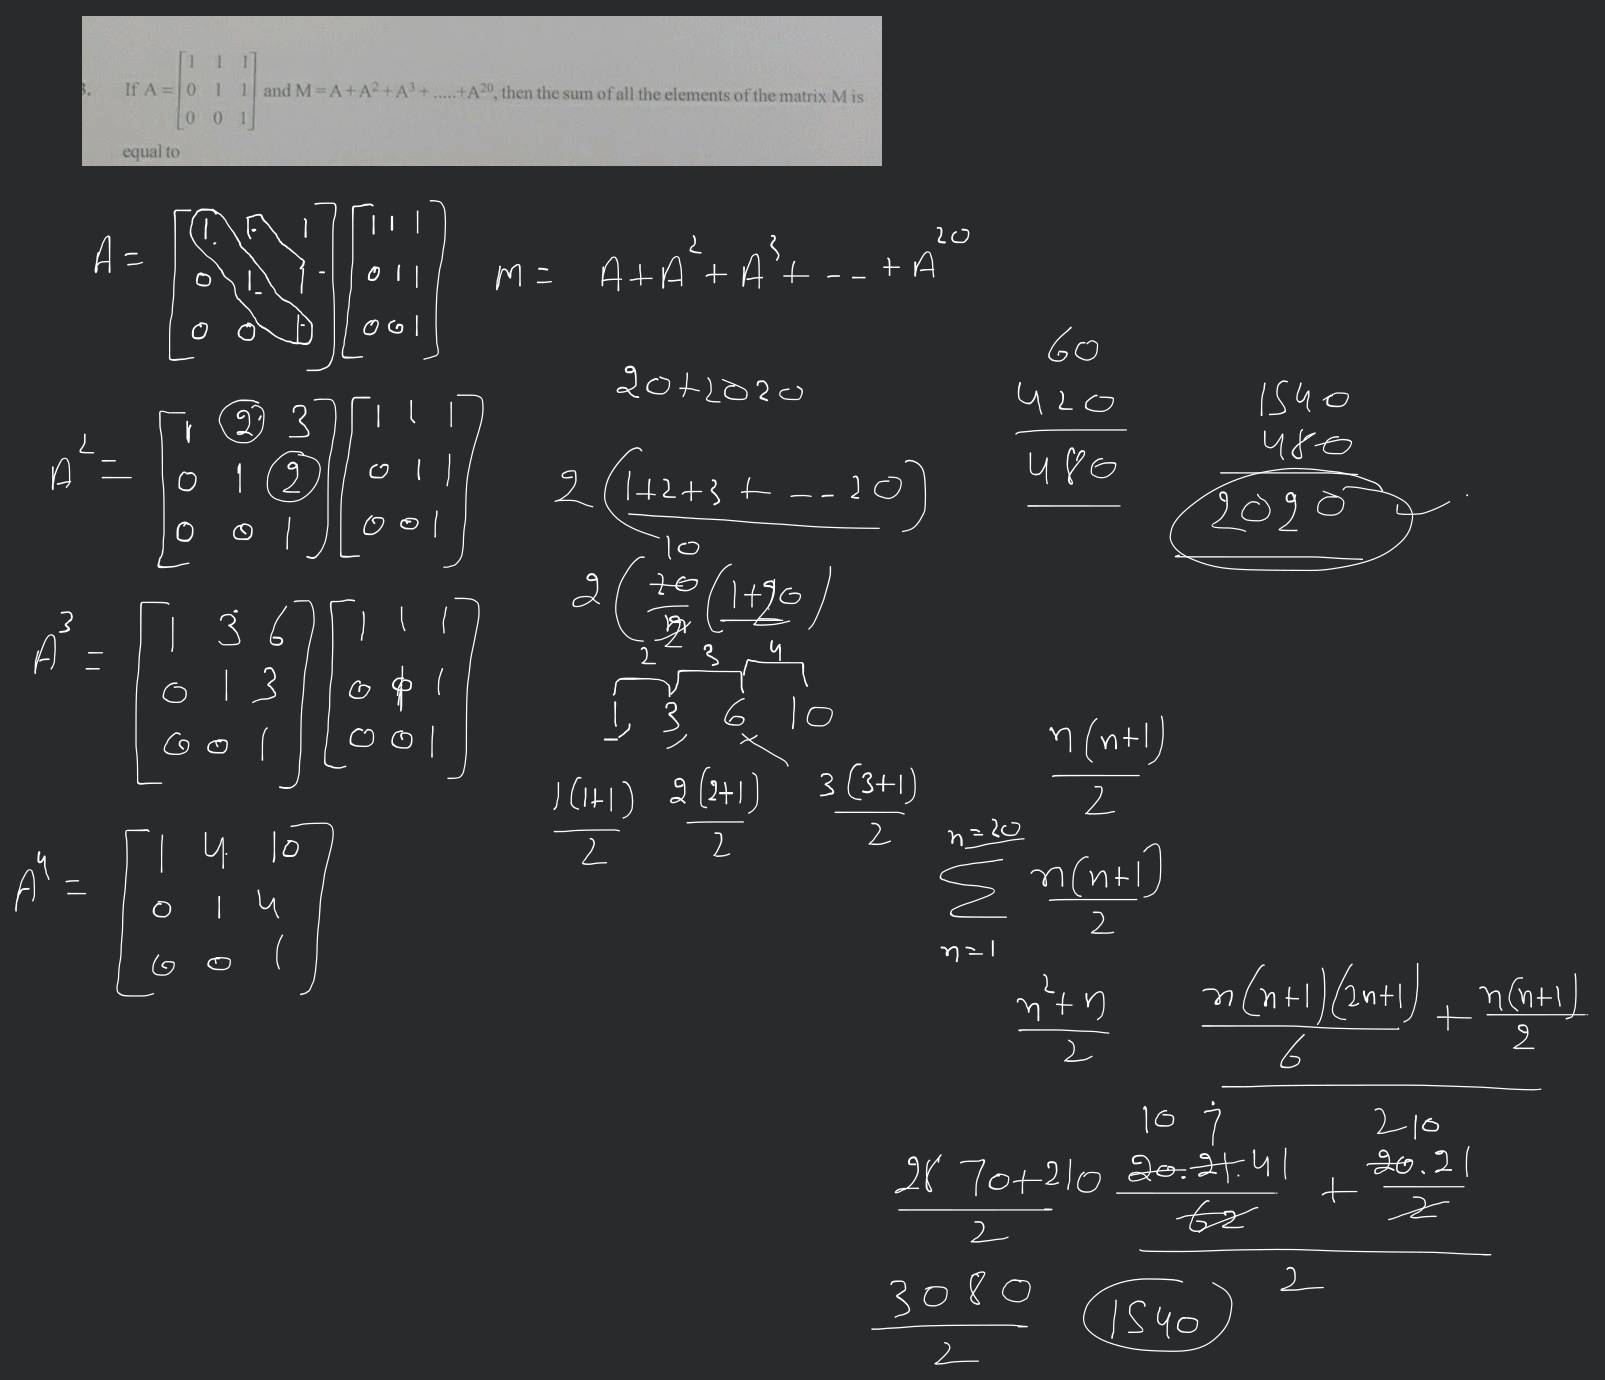 3. If A = [1 1 1; 0 1 1; 0 0 1] and M = A + A² + A³ + .....+A²⁰, then the sum of all the elements of the matrix M is
equal to
A = [1 1 1; 0 1 1; 0 0 1] · [1 1 1; 0 1 1; 0 0 1]
M = A + A² + A³ + -- -- + A²⁰
A² = [1 2 3; 0 1 2; 0 0 1] [1 1 1; 0 1 1; 0 0 1]
A³ = [1 3 6; 0 1 3; 0 0 1] [1 1 1; 0 1 1; 0 0 1]
A⁴ = [1 4 10; 0 1 4; 0 0 1]
20+2020
2(1+2+3+ -- -- 20)
10
2(20/2 (1+20)
2 3 4
1, 3, 6 10
1(1+1)/2 2(2+1)/2 3(3+1)/2
60
420
480
1540
480
2020
n(n+1)/2
n=20
Σ n(n+1)/2
n=1
n²+n/2
n(n+1)(2n+1)/6 + n(n+1)/2
10 7 210
20.21.41/62 + 20.21/2
2
2870+210/2
3080/2
1540